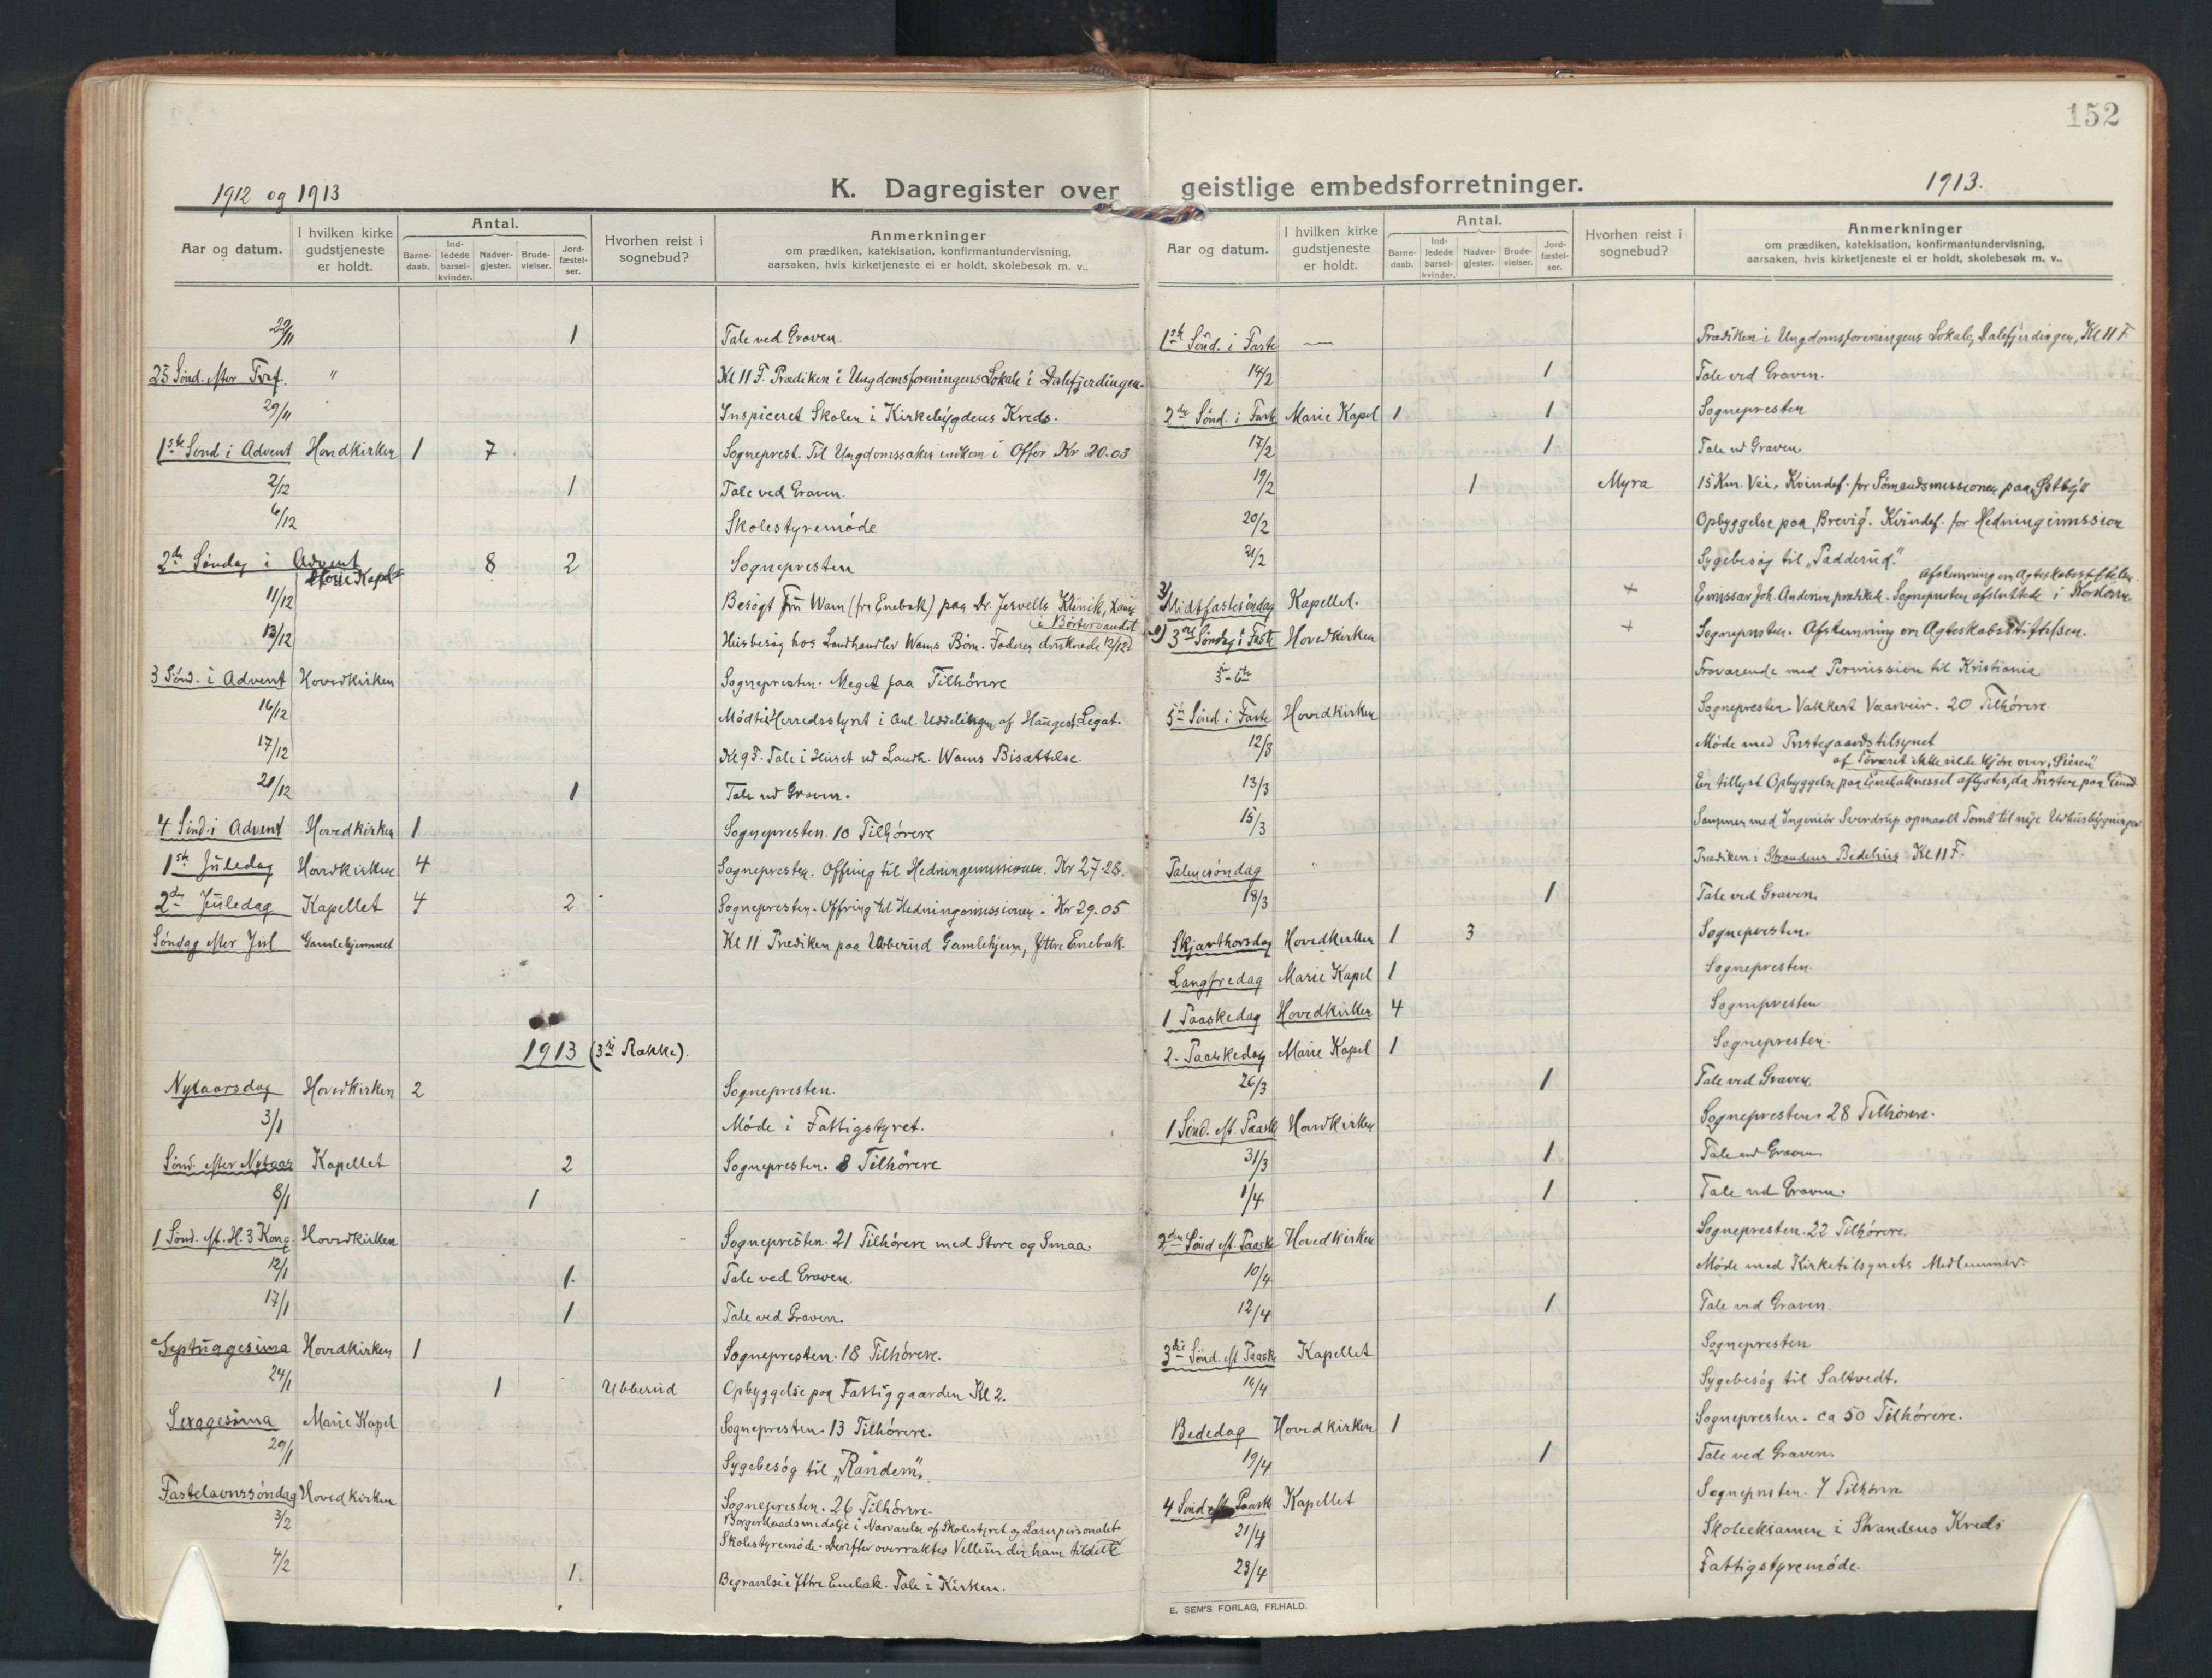 152
1912 og 1913
K. Dagregister over
Aar og datum.
I hvilken kirke gudstjeneste er holdt.
Antal.
Barne-daab.
Ind-ledede barsel-kvinder.
Nadver-gjester.
Brude-vielser.
Jord-fæstel-ser.
Hvorhen reist i sognebud?
Anmerkninger
om prædiken, katekisation, konfirmantundervisning,
aarsaken, hvis kirketjeneste ei er holdt, skolebesøk m. v..
22/11 1 Tale ved Graven.
25 Sønd. efter Tref. " Kl 11 F. Prædiken i Ungdomsforeningens Lokale i Dalefjerdingen.
29/11 Inspiceret Skolen i Kirkebygdens Kreds.
1ste Sønd i Advent Hovedkirken 1 7 Sogneprest. Til Ungdomssaken indkom i Offer Kr 20.03
2/12 1 Tale ved Graven.
6/12 Skolestyremøde
2den Søndag i Advent Marie Kapel 8 2 Sognepresten
11/12 Besøgt Fru Wam (fra Enebak) paa Dr. Jervells Klinik,
i Børtervandet
13/12 Husbesøg hos Landhandler Wams Børn. Faderen druknede 12/12
3 Sønd. i Advent Hovedkirken Sognepresten. Meget faa Tilhørere
16/12 Mødt i Herredsstyret i anl. Uddelingen af Hauges Legat.
17/12 Kl 9 F. Tale i Huset ved Landh. Wams Bisættelse.
20/12 1 Tale ved Graven.
4 Sønd. i Advent Hovedkirken 1 Sognepresten. 10 Tilhørere
1ste Juledag Hovedkirken 4 Sognepresten. Offring til Hedningemissionen. Kr 27.28.
2den Juledag Kapellet 4 2 Sognepresten. Offring til Hedningemissionen. Kr 29.05
Søndag efter Jul Gamlehjemmet Kl 11 Prædiken paa Ubberud Gamlehjem, Ytre Enebak.
1913 (3die Række).
Nytaarsdag Hovedkirken 2 Sognepresten.
3/1 Møde i Fattigstyret.
Sønd. efter Nytaar Kapellet 2 Sognepresten. 8 Tilhørere
8/1 1
1 Sønd. eft. H. 3 Kong. Hovedkirken Sognepresten. 21 Tilhørere med Store og Smaa.
12/1 1 Tale ved Graven.
17/1 1 Tale ved Graven.
Septuagesima Hovedkirken 1 Sognepresten. 18 Tilhørere.
24/1 1 Ubberud Opbyggelse paa Fattiggaarden Kl 2.
Sexagesima Marie Kapel Sognepresten. 13 Tilhørere.
29/1 Sygebesøg til "Randem".
Fastelavnssøndag Hovedkirken Sognepresten. 26 Tilhørere.
Borgerdaadsmedalje i Nærværelse af Skolestyret og Lærerpersonalet
3/2 Skolestyremøde. Derefter overraktes Vellesen den ham tildelte
4/2 1. Begravelse i Ytre Enebak. Tale i Kirken.
geistlige embedsforretninger.
1913.
Aar og datum.
I hvilken kirke gudstjeneste er holdt.
Antal.
Barne-daab.
Ind-ledede barsel-kvinder.
Nadver-gjester.
Brude-vielser.
Jord-fæstel-ser.
Hvorhen reist i sognebud?
Anmerkninger
om prædiken, katekisation, konfirmantundervisning,
aarsaken, hvis kirketjeneste ei er holdt, skolebesøk m. v..
1ste Sønd. i Faste — Prædiken i Ungdomsforeningens Lokale, Dalefjerdingen, Kl 11 F.
14/2 1 Tale ved Graven.
2den Sønd. i Faste Marie Kapel 1 1 Sognepresten
17/2 1 Tale ved Graven.
19/2 1 Myra 15 Km. Vei. Kvindef. for Sømandsmissionen paa Østby
20/2 Opbyggelse paa Brevig. Kvindef. for Hedningemission
21/2 Sygebesøg til "Padderud."
Afstemning om Agteskabsstiftelsen.
3/ Midtfastesøndag Kapellet. + Emissær Joh. Andersen prædikede. Sognepresten afsluttede i Kordøren
2) 3die Søndag i Faste Hovedkirken + Sognepresten. Afstemning om Agteskabsstiftelsen.
3-6te Fraværende med Permission til Kristiania
5te Sønd i Faste Hovedkirken Sognepresten Vakkert Vaarveir. 20 Tilhørere.
12/3 Møde med Prestegaardstilsynet
af Føreret ikke vilde kjøre over "Sieren"
13/3 En tillyst Opbyggelse paa Enebaknesset aflystes, da Presten paa Grund
15/3 Sammen med Ingeniør Sverdrup opmaalt Tomt til nye Udhusbygninger
Palmesøndag " Prædiken i Strandens Bedehus Kl 11 F.
18/3 1 Tale ved Graven.
Skjærthorsdag Hovedkirken 1 3 Sognepresten.
Langfredag Marie Kapel 1 Sognepresten.
1 Paaskedag Hovedkirken 4 Sognepresten
2. Paaskedag Marie Kapel 1 Sognepresten.
26/3 1 Tale ved Graven.
1 Sønd. eft. Paaske Hovedkirken Sognepresten. 28 Tilhørere.
31/3 1 Tale ved Graven
1/4 1 Tale ved Graven.
2den Sønd eft. Paaske Hovedkirken Sognepresten. 22 Tilhørere.
10/4 Møde med Kirketilsynets Medlemmer.
12/4 1 Tale ved Graven.
3die Sønd. eft Paaske Kapellet Sognepresten
16/4 Sygebesøg til Saltvedt.
Bededag Hovedkirken 1 Sognepresten. ca 50 Tilhørere.
19/4 1 Tale ved Graven.
4 Sønd eft Paaske Kapellet Sognepresten. 7 Tilhørere
21/4 Skoleeksamen i Strandens Kreds
23/4 Fattigstyremøde.
E. SEM'S FORLAG, FR.HALD.